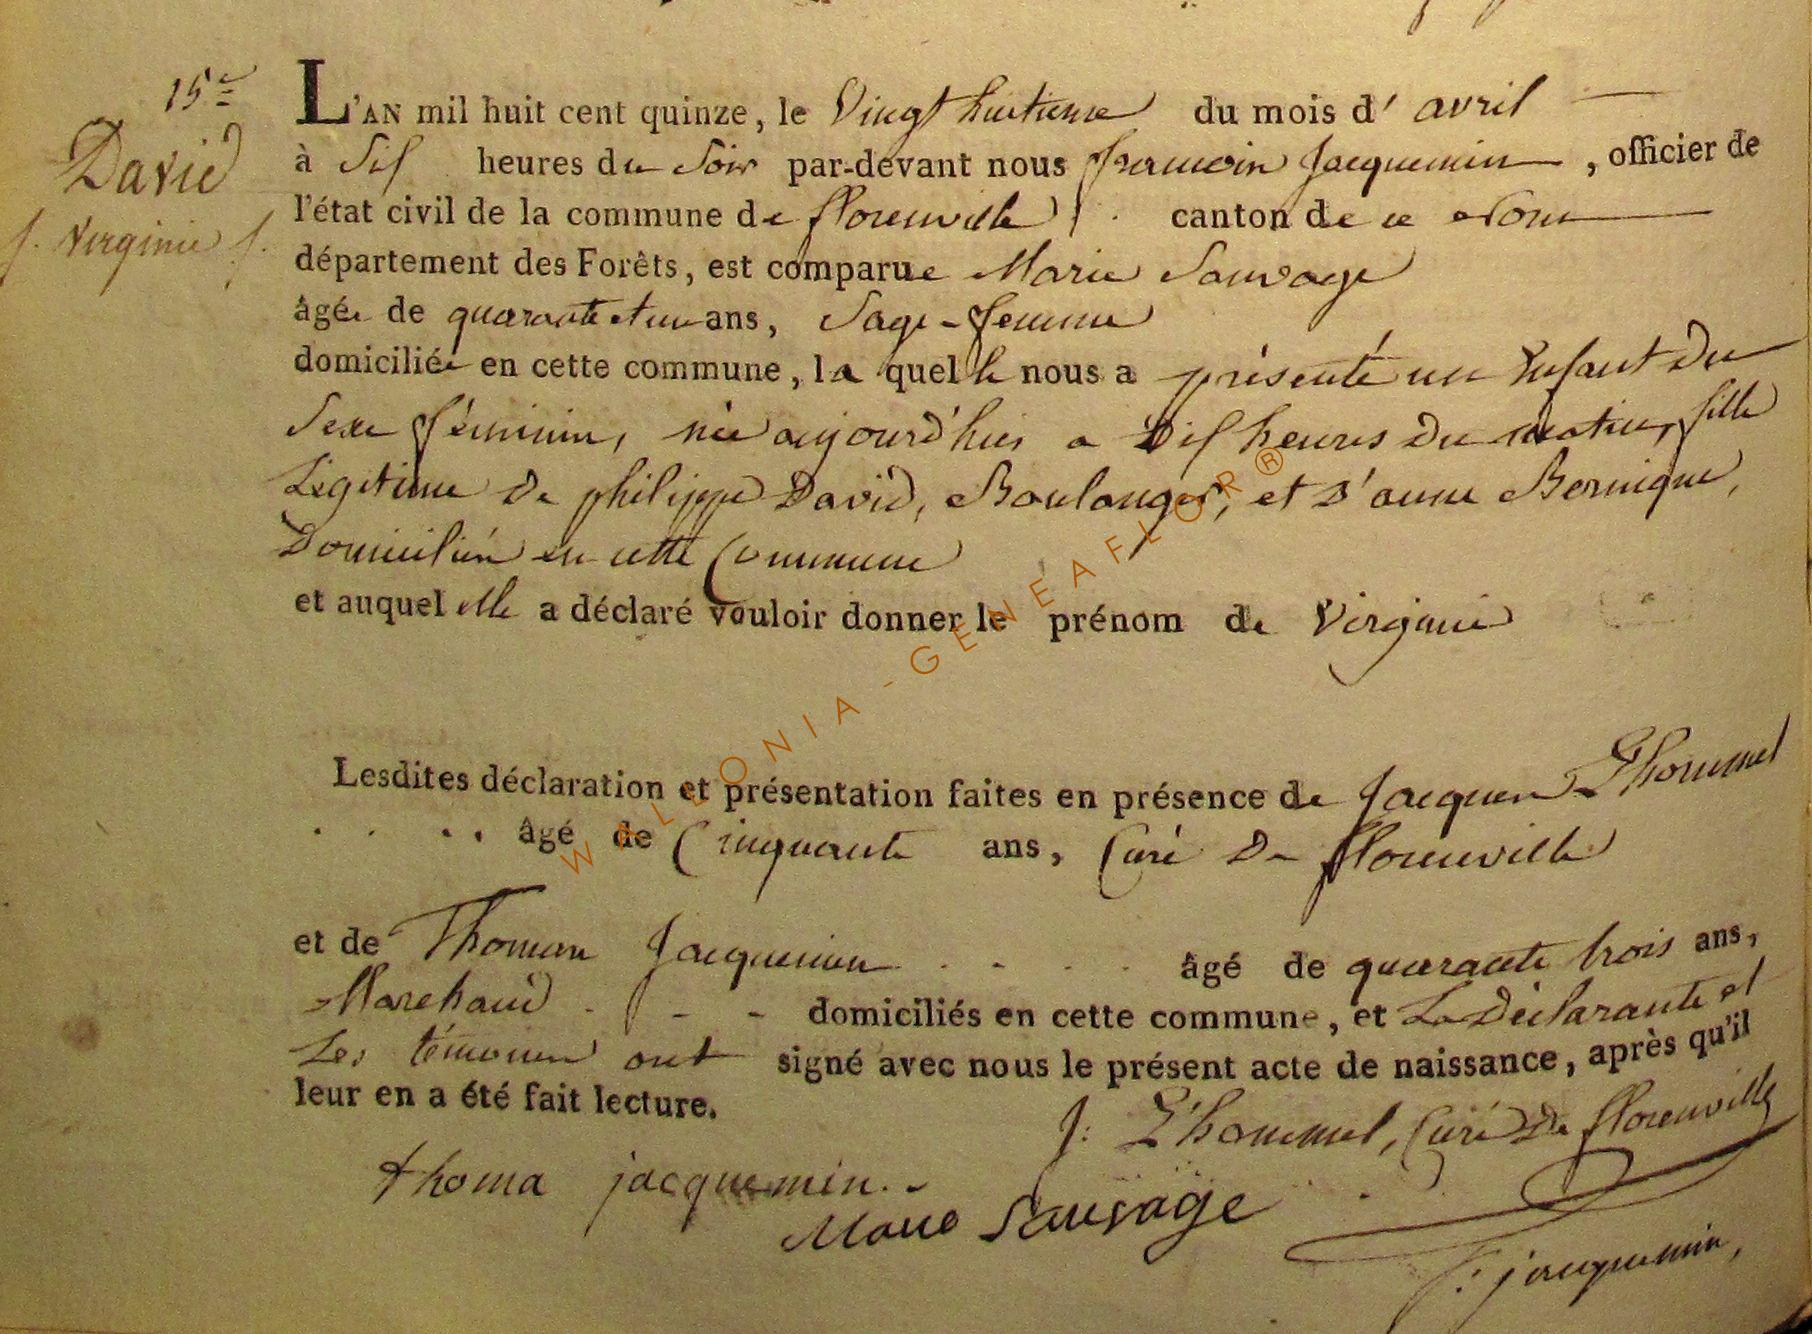 15e
David
f. Virginie f.
L'AN mil huit cent quinze, le Vingt huitieme du mois d' avril
à Six heures du Soir par-devant nous Jacquemin, officier de
l'état civil de la commune de florenville canton de ce Nom
département des Forêts, est comparue Marie Sauvage
âgée de quarante et un ans, Sage-femme
domiciliée en cette commune, la quelle nous a présenté un Enfant Du
Sexe féminin, née aujourd'hui a Dix heures Du matin, fille
Légitime De philippe David, Boulanger, et D'anne Bernique,
Domiciliés en cette Commune
et auquel elle a déclaré vouloir donner le prénom de Virginie
Lesdites déclaration et présentation faites en présence de Jacques L'hommel
âgé de Cinquante ans, Curé De florenville
et de Thomas Jacquemin âgé de quarante trois ans,
Marchand domiciliés en cette commune, et La Déclarante et
Les témoins ont signé avec nous le présent acte de naissance, après qu'il
leur en a été fait lecture.
J: L'hommel, Curé De florenville
thoma jacquemin
Marie Sauvage
F: jacquemin,
WALLONIA - GENEAFLOR®